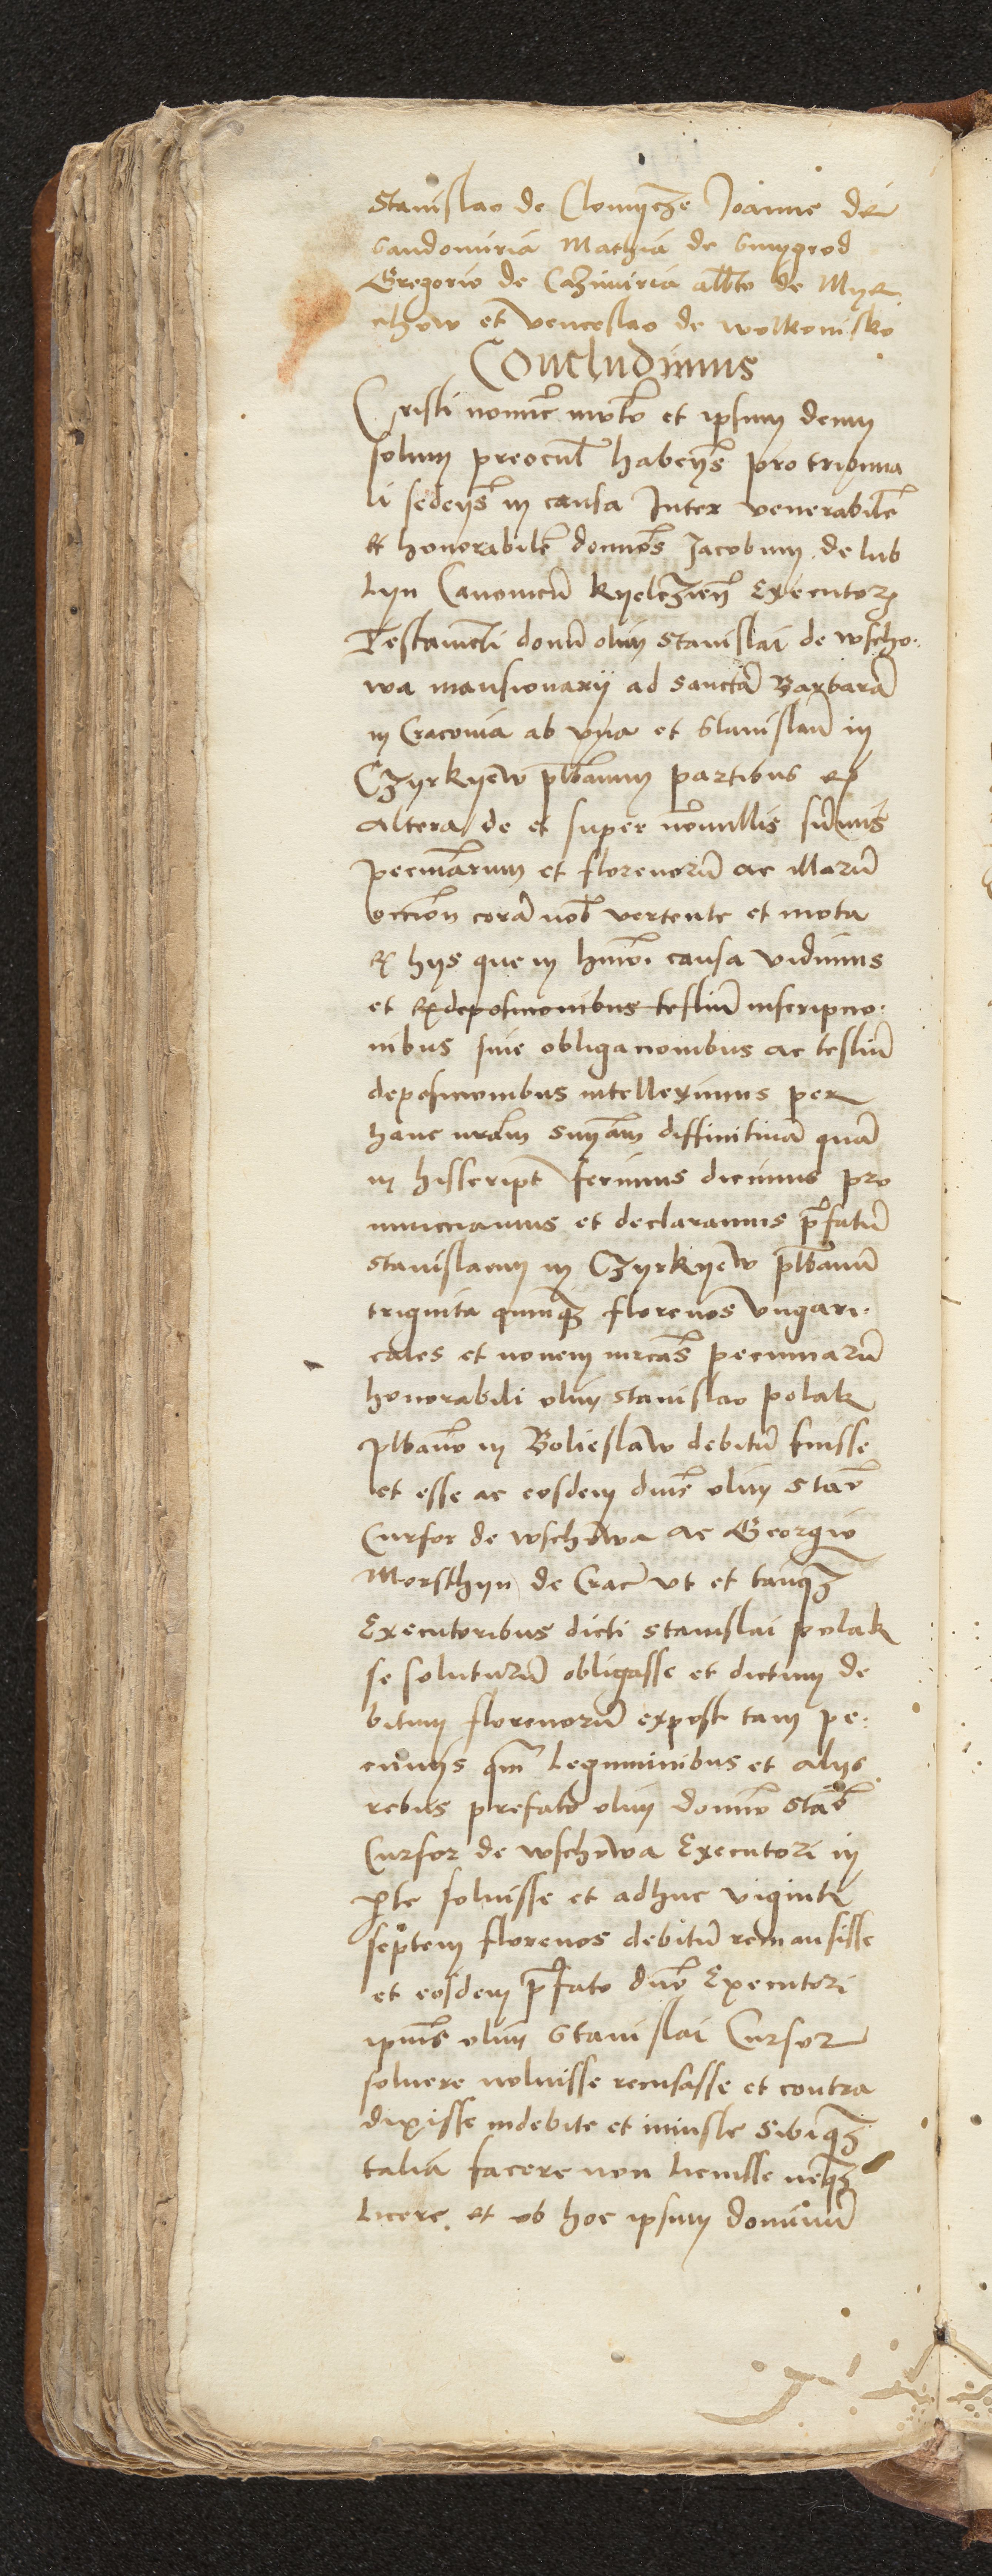 Stanislao de Clomycze Joanne de
Sandomiria Mathia de Smygrod
Gregorio de Cazimiria albto de MyE
chow et Venceslao de Wolkonisko
Concludimus
Cristi nomine inuocto et ipsum deum
solum preocul habens pro tribuna
li sedens in causa Inter venerabilem
et honorabilem dominos Jacobum de lub
lyn Canonicu kyelczien Executorem
Testamenti domi olim Stanislai de Wscho
wa mansionarij ad sanctam Barbaram
in Craconia ab vna et Stanislau in
Czyrkyew plbanum partibus ex
altera de et super nonnullis sumis
pecuniarum et florenoru ac illaru
occion cora nob vertente et mota
Ex hys que in huiusmodi causa vidimus
et Ex deposicionibus testium inscripcio
nibus siue obligacionibus ac testiu
deposicionibus intelleximus per
hanc nram snyam diffinitiua qua
in hisscript ferimus dicimus pro
nunciamus et declaramus pfatu
Stanislaum in Czyrkyew plbanu
triginta quinqz florenos Vngari
cales et nonem mrcas pecuniaru
honorabili olim Stanislao polak
plbano in Bolieslaw debitu fuisse
et esse ac eosdem dnis olim Stao
Cursor de Wschowa ac Georgio
Morsthyn de Crac vt et tanqz
Executoribus dicti Stanislai polak
se soluturu obligasse et dictum de
bitum florenoru expost tam pe
cunys qm leguminibus et alys
rebus prefato olim domino Stao
Cursor de Wschowa Executori in
pte soluisse et adhuc viginti
septem florenos debitu remansisse
et eosdem pfato dno Executori
ipius olim Stanislai Cursor
soluere noluisse recusasse et contra
dixisse indebite et iniuste Sibiqz
talia facere non licuisse neqz
licere et ob hoc ipsum dominu